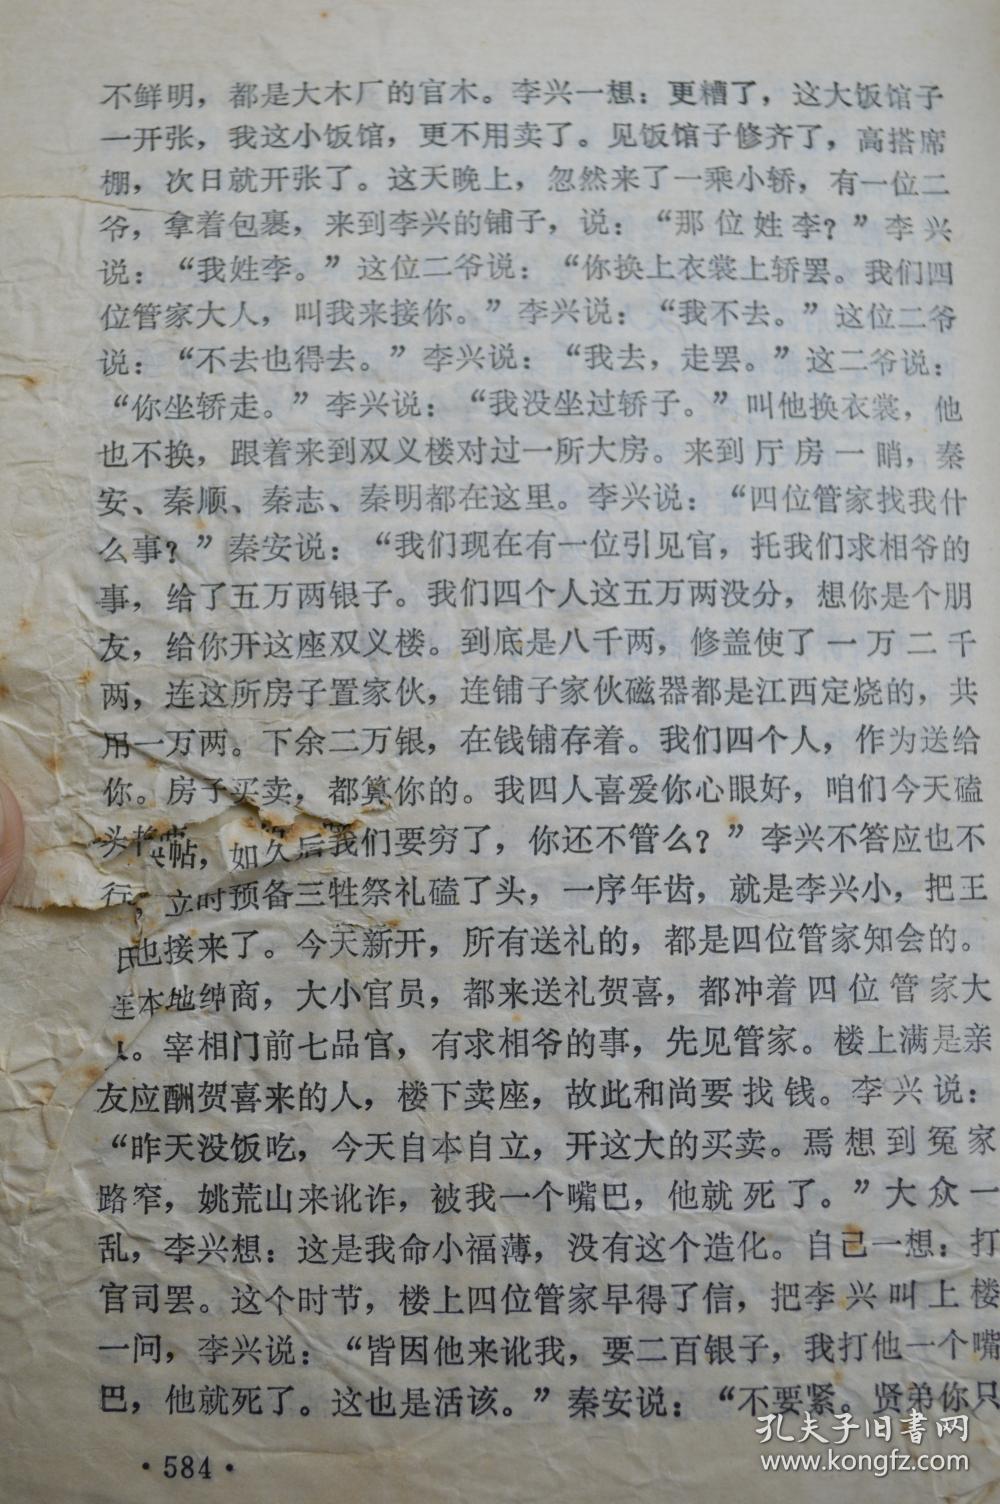 不鲜明，都是大木厂的官木。李兴一想：更糟了，这大饭馆子
一开张，我这小饭馆，更不用卖了。见饭馆子修齐了，高搭席
棚，次日就开张了。这天晚上，忽然来了一乘小轿，有一位二
爷，拿着包裹，来到李兴的铺子，说：“那位姓李？”李兴
说：“我姓李。”这位二爷说：“你换上衣裳上轿罢。我们四
位管家大人，叫我来接你。”李兴说：“我不去。”这位二爷
说：“不去也得去。”李兴说：“我去，走罢。”这二爷说：
“你坐轿走。”李兴说：“我没坐过轿子。”叫他换衣裳，他
也不换，跟着来到双义楼对过一所大房。来到厅房一瞧，秦
安、秦顺、秦志、秦明都在这里。李兴说：“四位管家找我什
么事？”秦安说：“我们现在有一位引见官，托我们求相爷的
事，给了五万两银子。我们四个人这五万两没分，想你是个朋
友，给你开这座双义楼。到底是八千两，修盖使了一万二千
两，连这所房子置家伙，连铺子家伙磁器都是江西定烧的，共
用一万两。下余二万银，在钱铺存着。我们四个人，作为送给
你。房子买卖，都算你的。我四人喜爱你心眼好，咱们今天磕
头换帖，如久后我们要穷了，你还不管么？”李兴不答应也不
行，立时预备三牲祭礼磕了头，一序年齿，就是李兴小，把王
氏也接来了。今天新开，所有送礼的，都是四位管家知会的。
连本地绅商，大小官员，都来送礼贺喜，都冲着四位管家大
人。宰相门前七品官，有求相爷的事，先见管家。楼上满是亲
友应酬贺喜来的人，楼下卖座，故此和尚要找钱。李兴说：
“昨天没饭吃，今天自本自立，开这大的买卖。焉想到冤家
路窄，姚荒山来讹诈，被我一个嘴巴，他就死了。”大众一
乱，李兴想：这是我命小福薄，没有这个造化。自己一想：打
官司罢。这个时节，楼上四位管家早得了信，把李兴叫上楼
一问，李兴说：“皆因他来讹我，要二百银子，我打他一个嘴
巴，他就死了。这也是活该。”秦安说：“不要紧。贤弟你只
·584·
孔夫子旧书网
www.kongfz.com